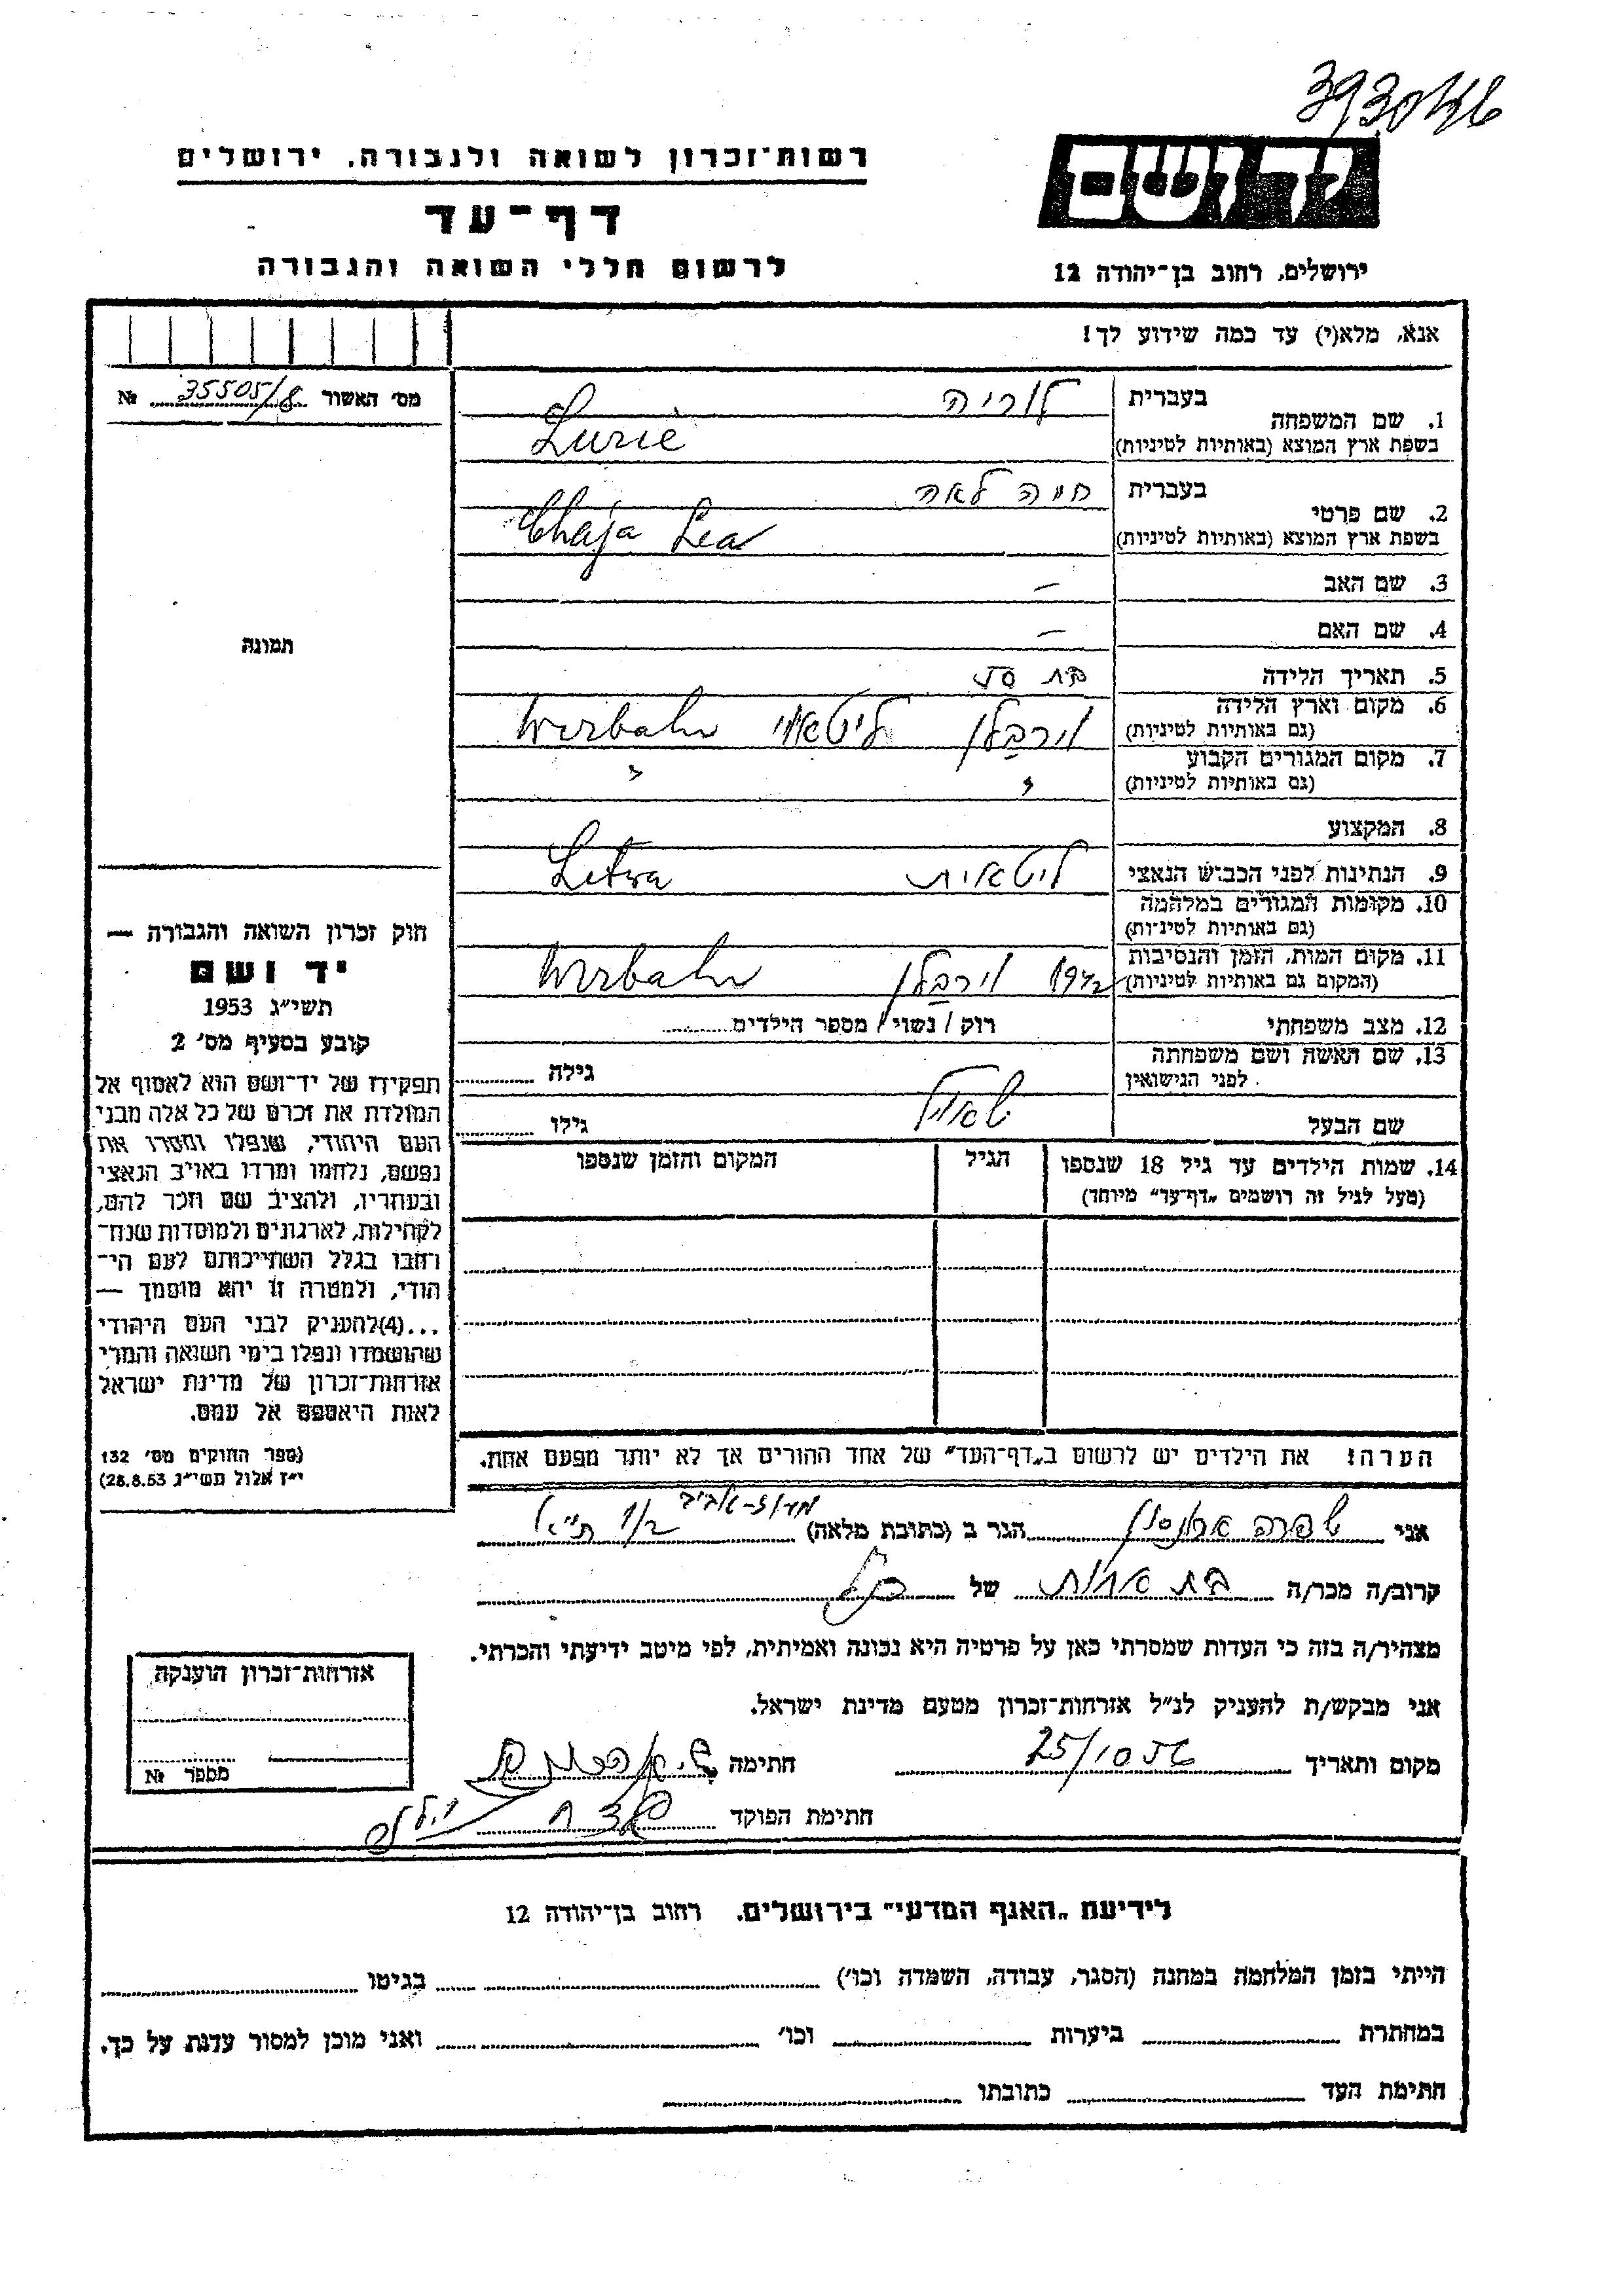 רשות־זכרון לשואה ולגבורה, ירושלים
דף־עד
לרשום חללי השואה והגבורה
יד ושם
ירושלים, רחוב בן־יהודה 12
אנא, מלא(י) עד כמה שידוע לך!
מס׳ האשור 35505/8 №
1. שם המשפחה
בעברית לוריה
בשפת ארץ המוצא (באותיות לטיניות) Lurie
2. שם פרטי
בעברית חיה לאה
בשפת ארץ המוצא (באותיות לטיניות) Chaja Lea
3. שם האב —
4. שם האם —
5. תאריך הלידה בת
6. מקום וארץ הלידה
(גם באותיות לטיניות) וירבלן ליטא Wirbaln
7. מקום המגורים הקבוע
(גם באותיות לטיניות) " "
8. המקצוע
9. הנתינות לפני הכבוש הנאצי ליטאית Letwa
10. מקומות המגורים במלחמה
(גם באותיות לטיניות)
11. מקום המות, הזמן והנסיבות
(המקום גם באותיות לטיניות) 1942 וירבלן Wirbaln
12. מצב משפחתי רוק / נשוי / מספר הילדים
13. שם האשה ושם משפחתה
לפני הנישואין גילה
שם הבעל שאול גילו
14. שמות הילדים עד גיל 18 שנספו הגיל המקום והזמן שנספו
(מעל לגיל זה רושמים „דף־עד״ מיוחד)
הערה! את הילדים יש לרשום ב„דף־העד״ של אחד ההורים אך לא יותר מפעם אחת.
תמונה
חוק זכרון השואה והגבורה —
יד ושם
תשי״ג 1953
קובע בסעיף מס׳ 2
תפקידו של יד־ושם הוא לאסוף אל
המולדת את זכרם של כל אלה מבני
העם היהודי, שנפלו ומסרו את
נפשם, נלחמו ומרדו באויב הנאצי
ובעוזריו, ולהציב שם וזכר להם,
לקהילות, לארגונים ולמוסדות שנח־
רבו בגלל השתייכותם לעם הי־
הודי, ולמטרה זו יהא מוסמך —
...(4) להעניק לבני העם היהודי
שהושמדו ונפלו בימי השואה והמרי
אזרחות־זכרון של מדינת ישראל
לאות היאספם אל עמם.
(ספר החוקים מס׳ 132
י״ז אלול תשי״ג 28.8.53)
אני שפרה הגר ב (כתובת מלאה)
קרוב/ה מכר/ה בת אחות של הנ״ל
מצהיר/ה בזה כי העדות שמסרתי כאן על פרטיה היא נכונה ואמיתית, לפי מיטב ידיעתי והכרתי.
אני מבקש/ת להעניק לנ״ל אזרחות־זכרון מטעם מדינת ישראל.
מקום ותאריך 25/10 56 חתימה
חתימת הפוקד
אזרחות־זכרון הוענקה
מספר №
לידיעת „האגף המדעי״ בירושלים, רחוב בן־יהודה 12
הייתי בזמן המלחמה במחנה (הסגר, עבודה, השמדה וכו׳) בגיטו
במחתרת ביערות וכו׳ ואני מוכן למסור עדות על כך.
חתימת העד כתובתו